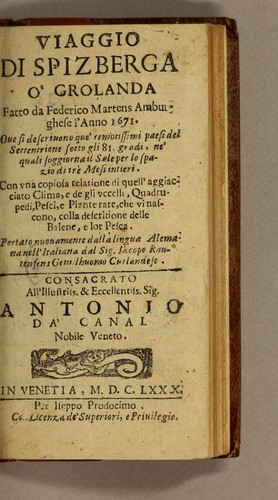 VIAGGIO
DI SPIZBERGA
O' GROLANDA
Fatto da Federico Martens Ambur-
ghese l'Anno 1671.
Oue si descriuono que' remotissimi paesi del
Settentrione sotto gli 81. gradi, ne'
quali soggiorna il Sole per lo spa-
zio di trè Mesi intieri.
Con vna copiosa relatione di quell'aggiac-
ciato Clima, e de gli vccelli, Quadru-
pedi, Pesci, e Piante rare, che vi nas-
cono, colla descritione delle
Balene, e lor Pesca.
Portato nuouamente dalla lingua Alema-
na nell'Italiana dal Sig. Iacopo Rau-
tensens Gentilhuomo Curlandese.
CONSACRATO
All'Illustriss. & Eccellentiss. Sig.
ANTONIO
DA' CANAL
Nobile Veneto.
IN VENETIA, M. D. C. LXXX.
Per Iseppo Prodocimo.
Co. Licenza de' Superiori, e Priuilegio.